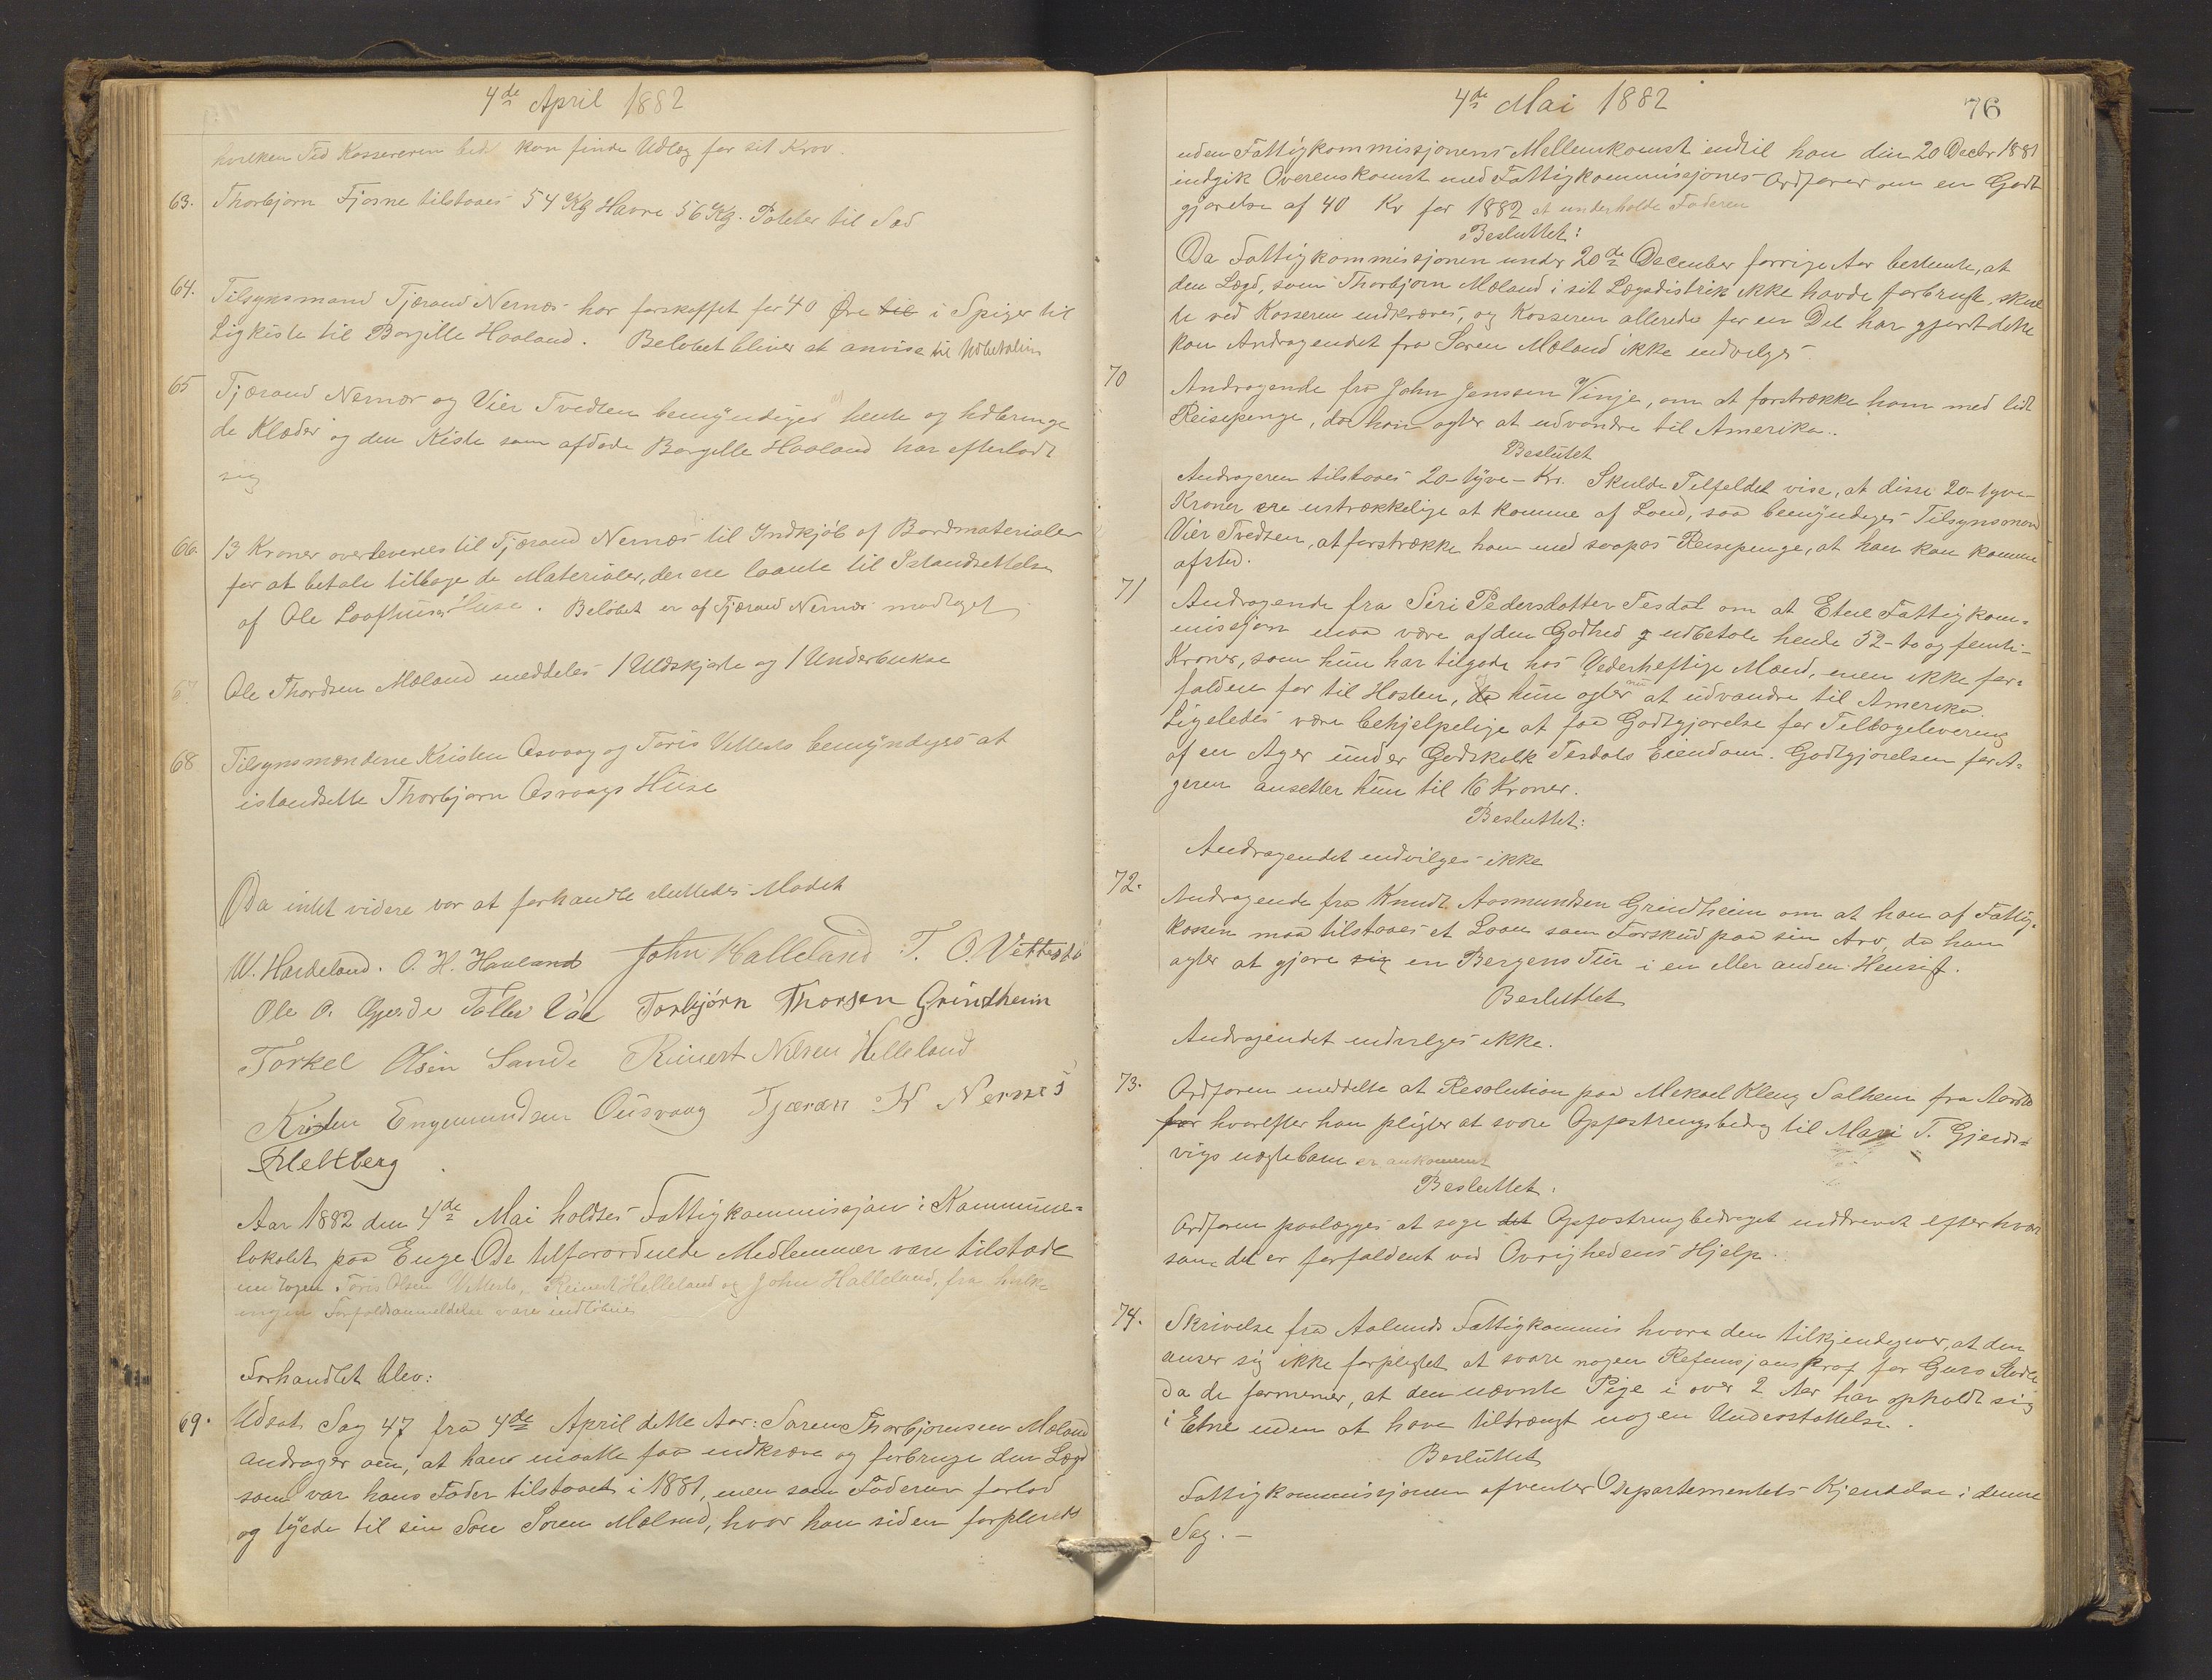 4de April 1882
hvilken Tid Kassereren bedst kan finde Udlæg for sit Krav.
63. Thorbjørn Fjøsne tilstaaes 54 Kg Havre 56 Kg. Poteter til Sæd
64. Tilsynsmand Tjærand Nernæs har forskaffet for 40 Øre til i Spiger til
Ligkiste til Borgille Haaland. Beløbet bliver at anvise til Udbetaling
65 Tjærand Nernæs og Vier Tvedten bemyndiges at hente og hidbringe
de Klæder og den Kiste som afdøde Borgille Haaland har efterladt
sig
66. 13 Kroner overleveres til Tjærand Nernæs til Indkjøb af Bordmaterialer
for at betale tilbage de Materialer, der ere laante til Istandsettelse
af Ole Laafhus Huse. Beløbet er af Tjærand Nernæs modtaget
67. Ole Thordsen Mæland meddeles 1 Uldskjorte og 1 Underbukse
68 Tilsynsmændene Kristen Øsvaag og Tøris Vettestø bemyndyges at
istandsette Thorbjørn Øsvaags Huse
Da intet videre var at forhandle sluttedes Mødet
W. Hardeland. O. H. Haaland John Halleland T. O. Vettestø
Ole O. Gjerde Toller Våe Torbjørn Thorsen Grindheim
Torkel Olsen Sande Reinert Nilsen Helleland
Kristen Engemundsen Øusvaag Tjæran K Nernes
F. Heltberg
Aar 1882 den 4de Mai holdtes Fattigkommissjon i Kommune-
lokalet paa Enge De tilforordnede Medlemmer vare tilstede
undtagen Tøris Olsen Vettestø, Reinert Helleland og John Halleland, fra hvilke
ingen Forfaldsanmeldelse vare indløbne
Forhandlet blev:
69. Udsat Sag 47 fra 4de April dette Aar: Søren Thorbjørnsen Mæland
andrager om, at han maatte faa indkræve og forbruge den Lægd
som var hans Fader tilstaaet i 1881, men som Faderen forlod
og tyede til sin Søn Søren Mæland, hvor han siden forpleiedes
4de Mai 1882
76
uden Fattigkommissjonens Mellemkomst indtil han den 20 Decbr 1881
indgik Overenskomst med Fattigkommissjones Ordfører om en Godt
gjørelse af 40 Kr for 1882 at underholde Faderen
Besluttet:
Da Fattigkommissjonen under 20de December forrige Aar bestemte, at
den Lægd, som Thorbjørn Mæland i sit Lægdsdistrik ikke havde forbrugt, skul
te ved Kasseren indkræves, og Kasseren allerede for en Del har gjort dette
kan Andragendet fra Søren Mæland ikke indvilges.
70 Andragende fra John Jenssen Vinje, om at forstrække ham med lidt
Reisepenge, da han agter at udvandre til Amerika.
Beslutet
Andrageren tilstaaes 20-tyve-Kr. Skulde Tilfeldet vise, at disse 20-tyve-
Kroner ere ustrækkelige at komme af Land, saa bemyndiges Tilsynsmand
Vier Tvedten, at forstrække ham med saapas Reisepenge, at han kan komme
afsted.
71 Andragende fra Siri Pedersdatter Tesdal om at Etne Fattigkom-
missjon maa være af den Godhed g udbetale hende 52-to og femti-
Kroner, som hun har tilgode hos Vederheftige Mænd, men ikke for-
falden før til Høsten, da hun agter nu at udvandre til Amerika.
Ligeledes være behjelpelige at faa Godtgjørelse for Tilbagelevering
af en Ager under Godskalk Tesdals Eiendom. Godtgjørelsen for A-
geren ansetter hun til 16 Kroner.
Besluttet:
Andragendet indvilges ikke
72. Andragende fra Knudt Aasmundsen Grindheim om at han af Fattig-
kassen maa tilstaaes et Laan som Forskud paa sin Arv, da han
agter at gjøre sig en Bergens Tur i en eller anden Hensigt.
Besluttet
Andragendet indvilges ikke.
73. Ordføren meddelte at Resolution paa Mekael Kleng Salhem fra
for hvorefter han pligter at svare Opfostringsbidrag til Mari T. Gjerds-
vigs uægtebarn er ankommet
Besluttet.
Ordføren paalægges at søge det Opfostringbedraget inddrevet efterhvor
som det er forfaldent ved Øvrighedens Hjelp.
74. Skrivelse fra Aalunds Fattigkommis hvori den tilkjendegiver, at den
anser sig ikke forpligtet at svare nogen Refunsjonskrav for Guro
da de formener, at den nævnte Pige i over 2 Aar har opholdt sig
i Etne uden at have tiltrængt nogen Understøttelse.
Besluttet
Fattigkommissjonen afventer Departementets Kjendelse i denne
Sag. -